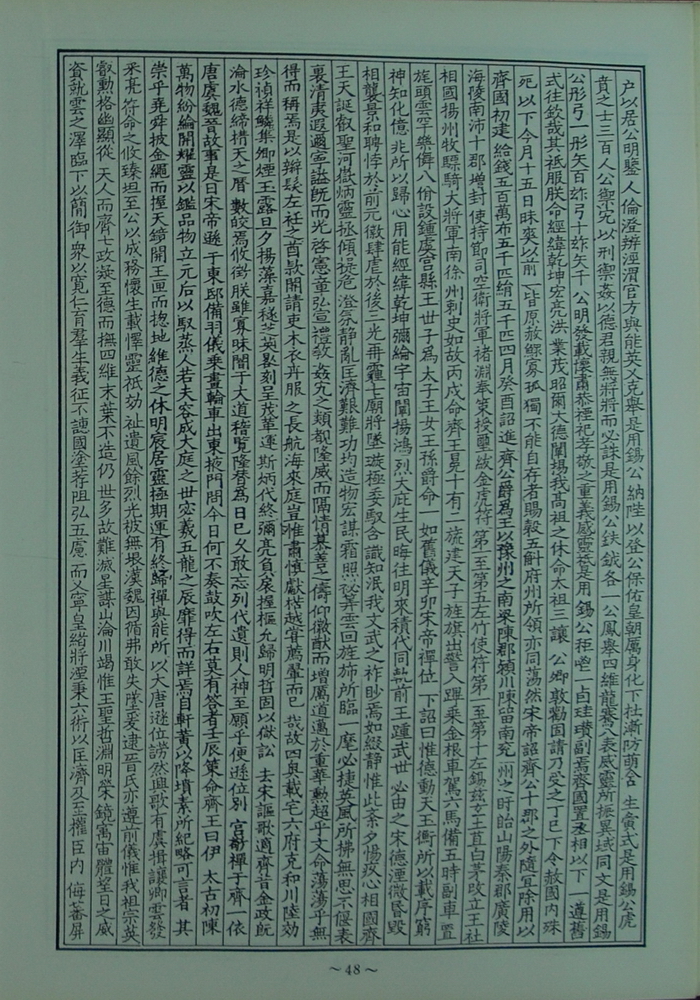 户以居公明鑒人倫澄辨涇渭官方與能英乂克舉是用錫公納陛以登公保佑皇朝厲身化下杜漸防萌含生寅式是用錫公虎
賁之士三百人公禦宄以刑禦姦以德君親無將將而必誅是用錫公鈇鉞各一公鳳舉四維龍騫八表威靈所振異域同文是用錫
公彤弓一彤矢百玈弓十玈矢千公明發載懷肅恭禋祀孝敬之重義感靈祇是用錫公秬鬯一卣珪瓚副焉齊國置丞相以下一遵舊
式往欽哉其祗服朕命經緯乾坤宏亮洪業茂昭爾大德闡揚我高祖之休命太祖三讓公卿敦勸固請乃受之丁巳下令赦國內殊
死以下今月十五日昧爽以前一皆原赦鰥寡孤獨不能自存者賜穀五斛府州所領亦同蕩然宋帝詔齊公十郡之外隨宜除用以
齊國初建給錢五百萬布五千匹絹五千匹四月癸酉詔進齊公爵為王以豫州之南梁陳郡潁川陳留南兗州之盱眙山陽秦郡廣陵
海陵南沛十郡增封使持節司空衛將軍褚淵奉策授璽紱金虎符第一至第五左竹使符第一至第十左錫茲玄土苴白茅改立王社
相國揚州牧驃騎大將軍南徐州刺史如故丙戌命齊王冕十有二旒建天子旌旗出警入蹕乘金根車駕六馬備五時副車置
旄頭雲罕樂儛八佾設鍾虡宮縣王世子為太子王女王孫爵命一如舊儀辛卯宋帝禪位下詔曰惟德動天玉衡所以載序窮
神知化億兆所以歸心用能經緯乾坤彌綸宇宙闡揚鴻烈大庇生民晦往明來積代同軌前王踵武世必由之宋德湮微昏毀
相襲景和騁悖於前元徽肆虐於後三光再霾七廟將墜璇極委馭含識知泯我文武之祚眇焉如綴靜惟此紊夕惕疚心相國齊
王天誕叡聖河嶽炳靈拯傾提危澄氛靜亂匡濟艱難功均造物宏謀霜照祕筭雲回旌旆所臨一麾必捷英風所拂無思不偃表
裏清夷遐邇寧謐既而光啓憲章弘宣禮教姦宄之類覩隆威而隔情慕善之儔仰徽猷而增厲道邁於重華勳超乎文命蕩蕩乎無
得而稱焉是以辮髮左衽之酋款關請吏木衣卉服之長航海來庭豈惟肅慎獻楛越裳薦翬而已哉故四奧載宅六府克和川陸効
珍禎祥鱗集卿煙玉露旦夕揚藻嘉穟芝英晷刻呈茂革運斯炳代終彌亮負扆握樞允歸明哲固以獄訟去宋謳歌適齊昔金政既
淪水德締構天之曆數皎焉攸徵朕雖寡昧闇于大道稽覽隆替為日已久敢忘列代遺則人神至願乎便遜位別宮敬禪于齊一依
唐虞魏晉故事是日宋帝遜于東邸備羽儀乘畫輪車出東掖門問今日何不奏鼓吹左右莫有答者壬辰策命齊王曰伊太古初陳
萬物紛綸開耀靈以鑑品物立元后以馭蒸人若夫容成大庭之世宓羲五龍之辰靡得而詳焉自軒黃以降墳素所紀略可言者其
崇乎堯舜披金繩而握天鏡開玉匣而揔地維德之休明宸居靈極期運有終歸禪與能所以大唐遜位謗然興歌有虞揖讓卿雲發
釆亮符命之攸臻坦至公以成務懷生載懌靈祇効祉遺風餘烈光被無垠漢魏因循弗敢失墜爰逮晉氏亦遵前儀惟我祖宗英
叡勳格幽顯從天人而齊七政凝至德而撫四維末葉不造仍世多故難滅星謀山淪川竭惟王聖哲淵明榮鏡㝢宙體望日之威
資就雲之澤臨下以簡御衆以寬仁育羣生義征不譓國塗荐阻弘五慮而乂寧皇緒將湮秉六術以匡濟及至權臣内侮蕃屏
~48~